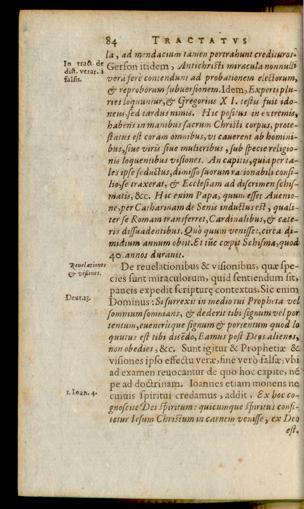 84 TRACTATVS
la, ad mendacium tamen pertrahunt credituros.
In tract. de dist. verar. à falsis.
Gerson itidem, Antichristi miracula nonnulli
vera fere contendunt ad probationem electorum,
& reproborum subuersionem. Idem, Experti plu-
ries loquuntur, & Gregorius X I. testis fuit ido-
neus, sed tardus nimis. Hic positus in extremis,
habens in manibus sacrum Christi corpus, prote-
status est coram omnibus, vt cauerent ab homini-
bus, siue viris siue mulieribus, sub specie religio-
nis loquentibus visiones. An captus, quia per ta-
les ipse seductus, dimisso suorum rationabili consi-
lio, se traxerat, & Ecclesiam ad discrimen schis-
matis, &c. Hic enim Papa, quum esset Auenio-
ne, per Catharinam de Senis inductus est, quali-
ter se Romam transferret, Cardinalibus, & cæte-
ris dissuadentibus. Quò quum venisset, circa di-
midium annum obiit. Et tũc cœpit Schisma, quod
40. annos durauit.
Reuelationes & visiones.
De reuelationibus & visionibus, quæ spe-
cies sunt miraculorum, quid sentiendum sit,
paucis expedit scripturę contextus. Sic enim
Deut. 13.
Dominus: Si surrexit in medio tui Propheta vel
somnium somnians, & dederit tibi signum vel por
tentum, eueneritque signum & portentum quod lo
quutus est tibi dicẽdo, Eamus post Deos alienos,
non obedies, &c. Sunt igitur & Prophetiæ &
visiones ipso effectu veræ, siue verò falsæ, vbi
ad examen reuocantur de quo hoc capite, nẽ
pe ad doctrinam. Ioannes etiam monens ne
1. Ioan. 4.
cuiuis spiritui credamus, addit, Ex hoc co-
gnoscite Dei spiritum: quicumque spiritus confi-
tetur Iesum Christum in carnem venisse, ex Deo
est.